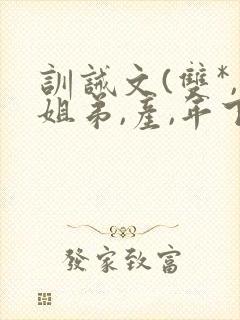 訓誡文(雙*,
姐弟,産,年下
發家致富